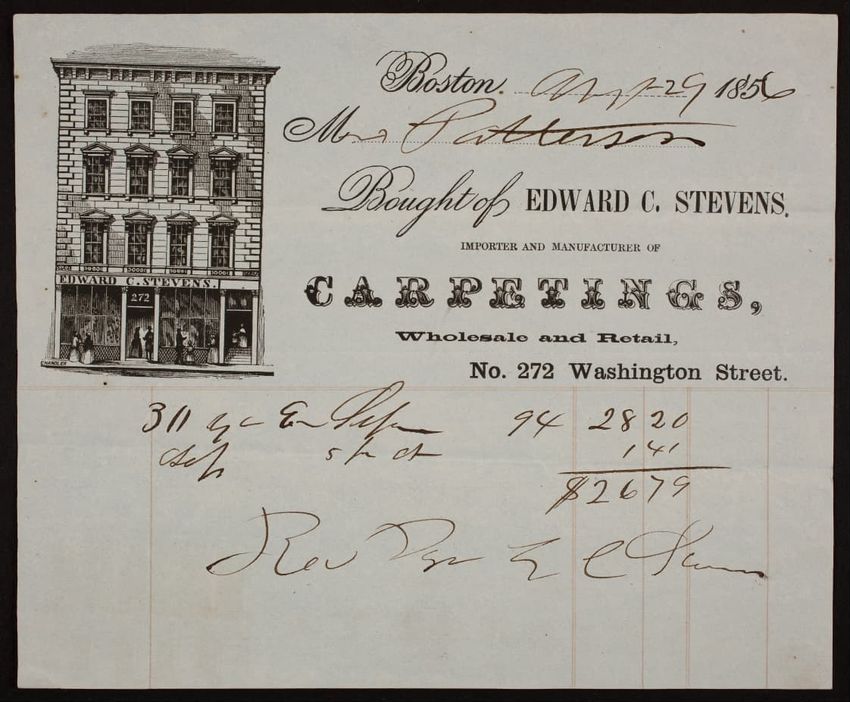 Boston. 29 1856
M Patterson
Bought of EDWARD C. STEVENS.
IMPORTER AND MANUFACTURER OF
CARPETINGS,
Wholesale and Retail,
No. 272 Washington Street.
EDWARD C. STEVENS.
272
CHANDLER
94 28 20
5 pr ct 1 41
$26 79
Rec Pay E C Stevens